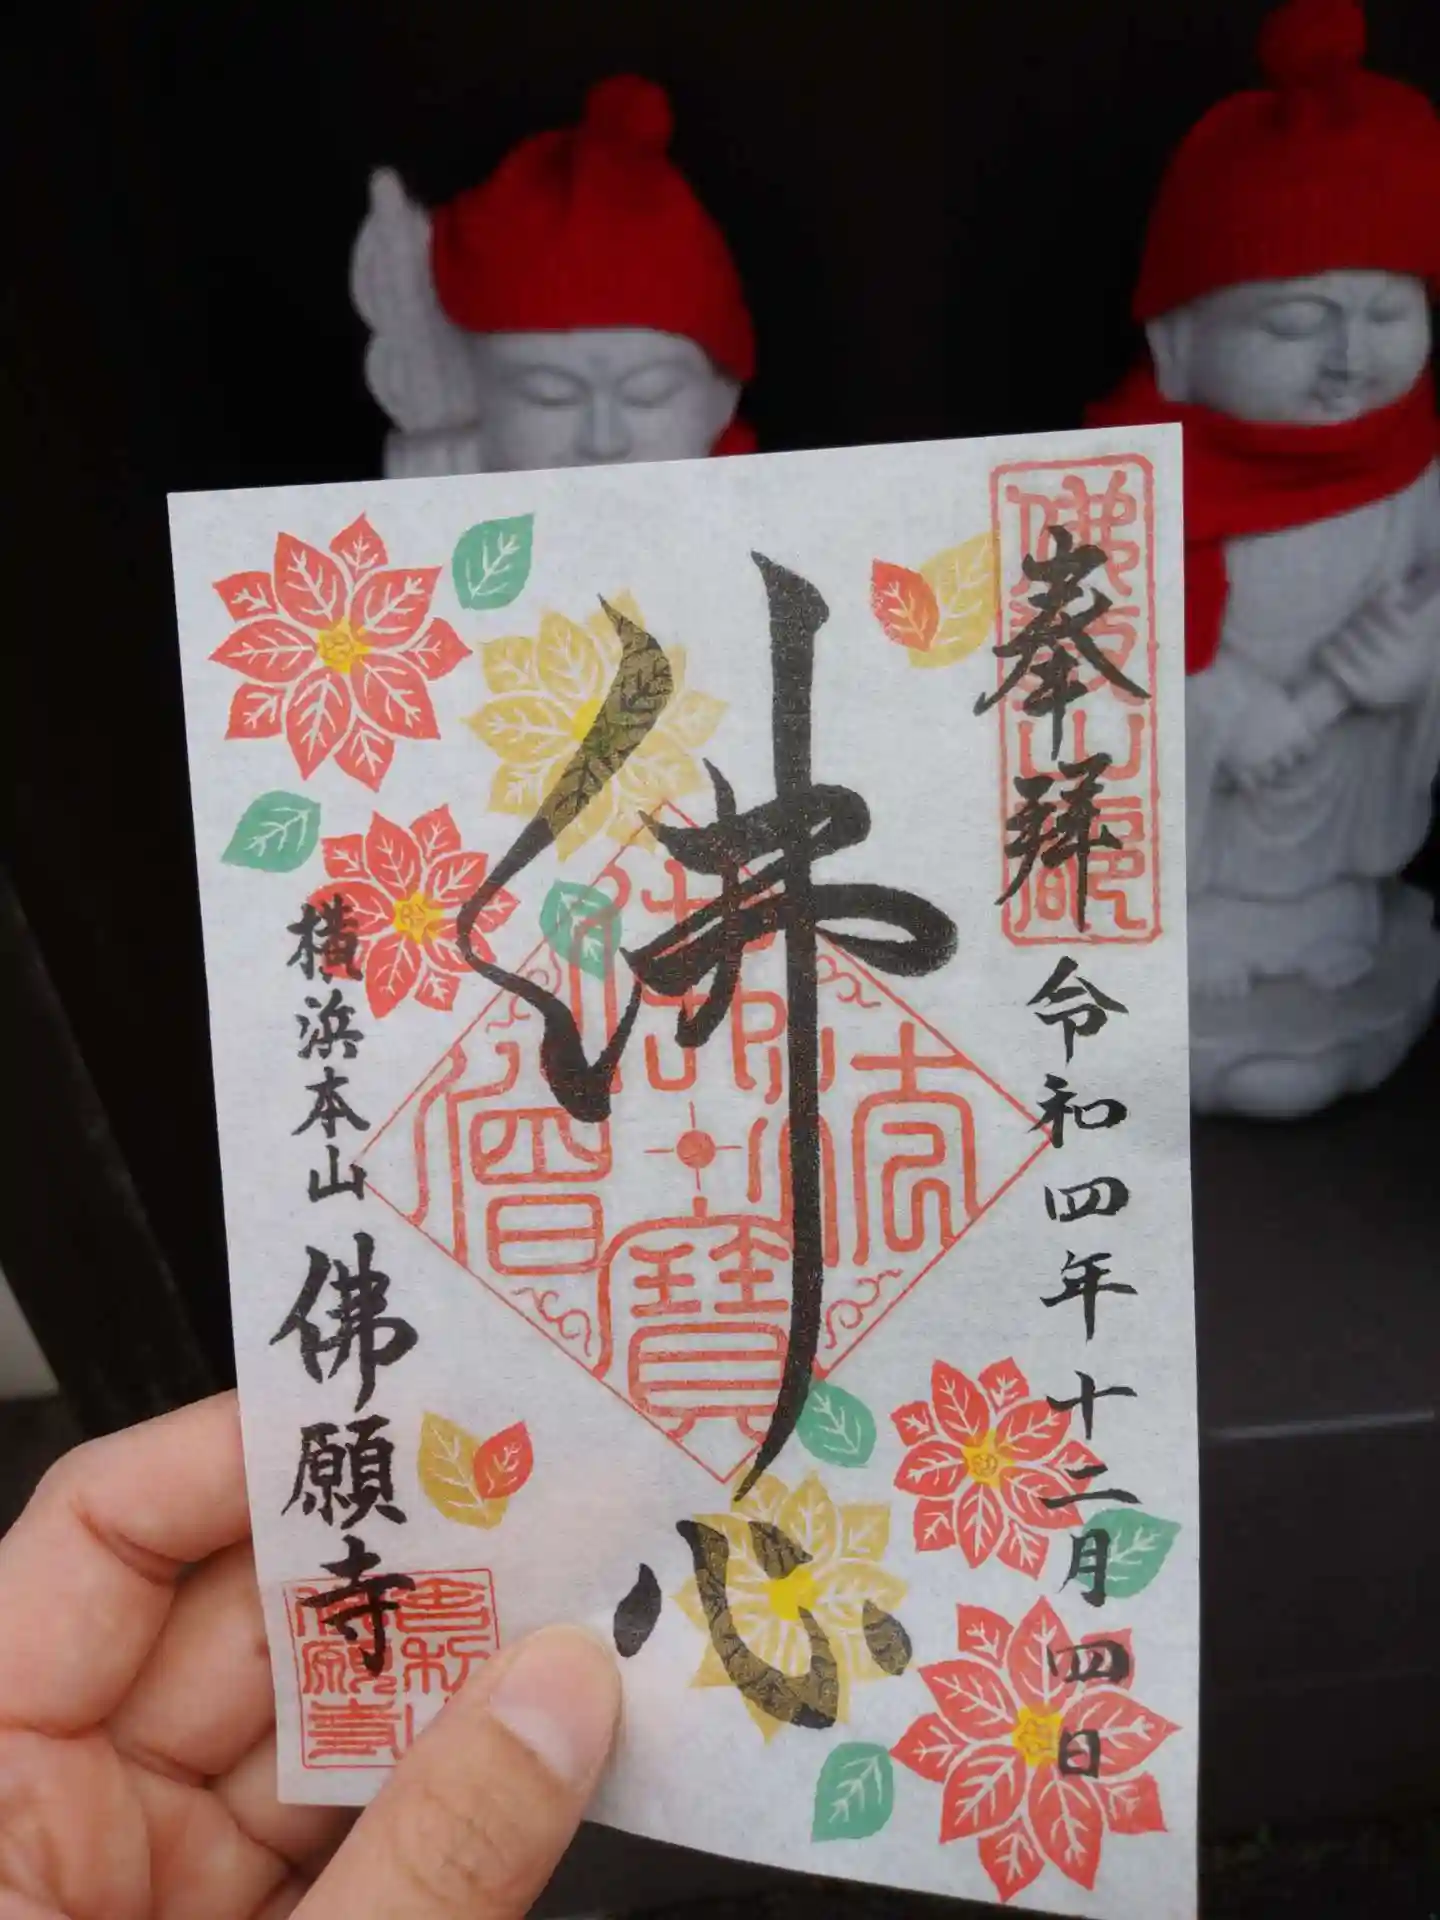 奉拝
令和四年十二月四日
佛心
横浜本山
佛願寺
佛法僧寶